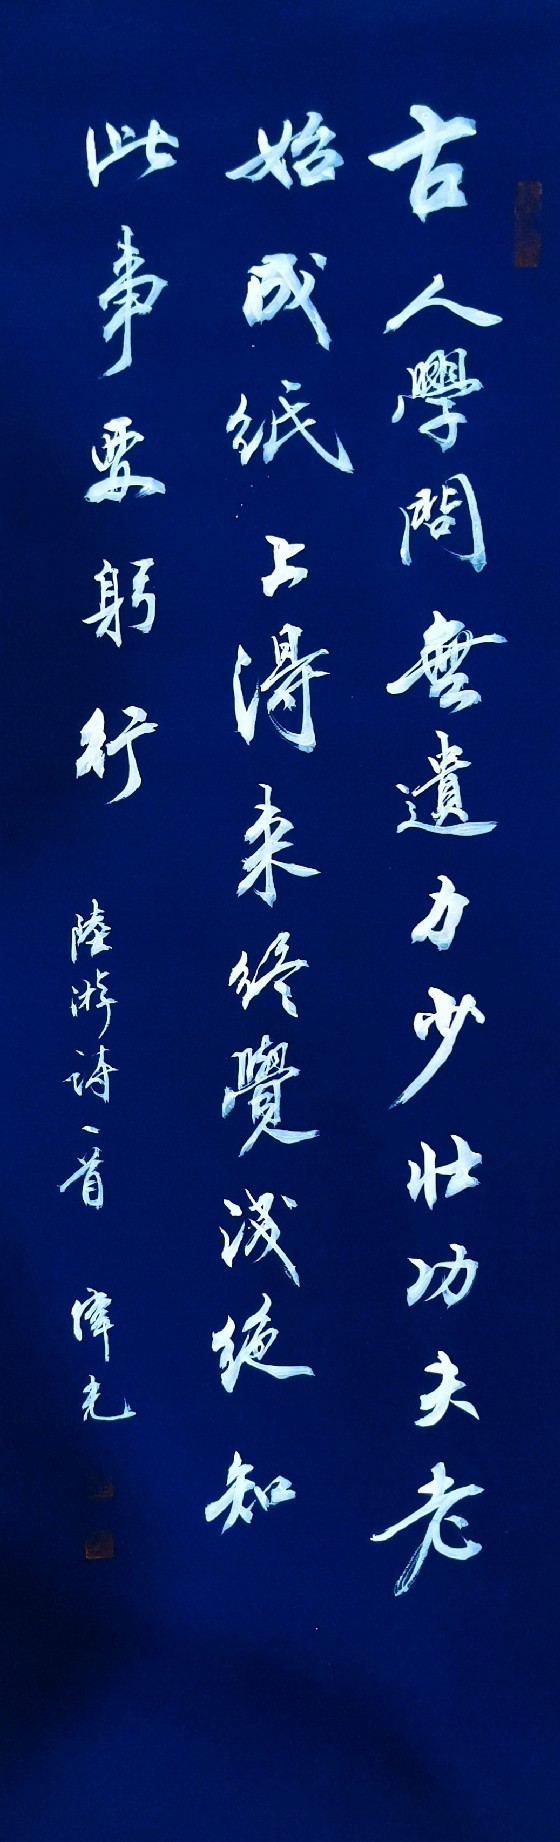 古人學問無遺力少壯功夫老
始成紙上得来終覺淺絕知
此事要躬行
陸游詩一首 偉光